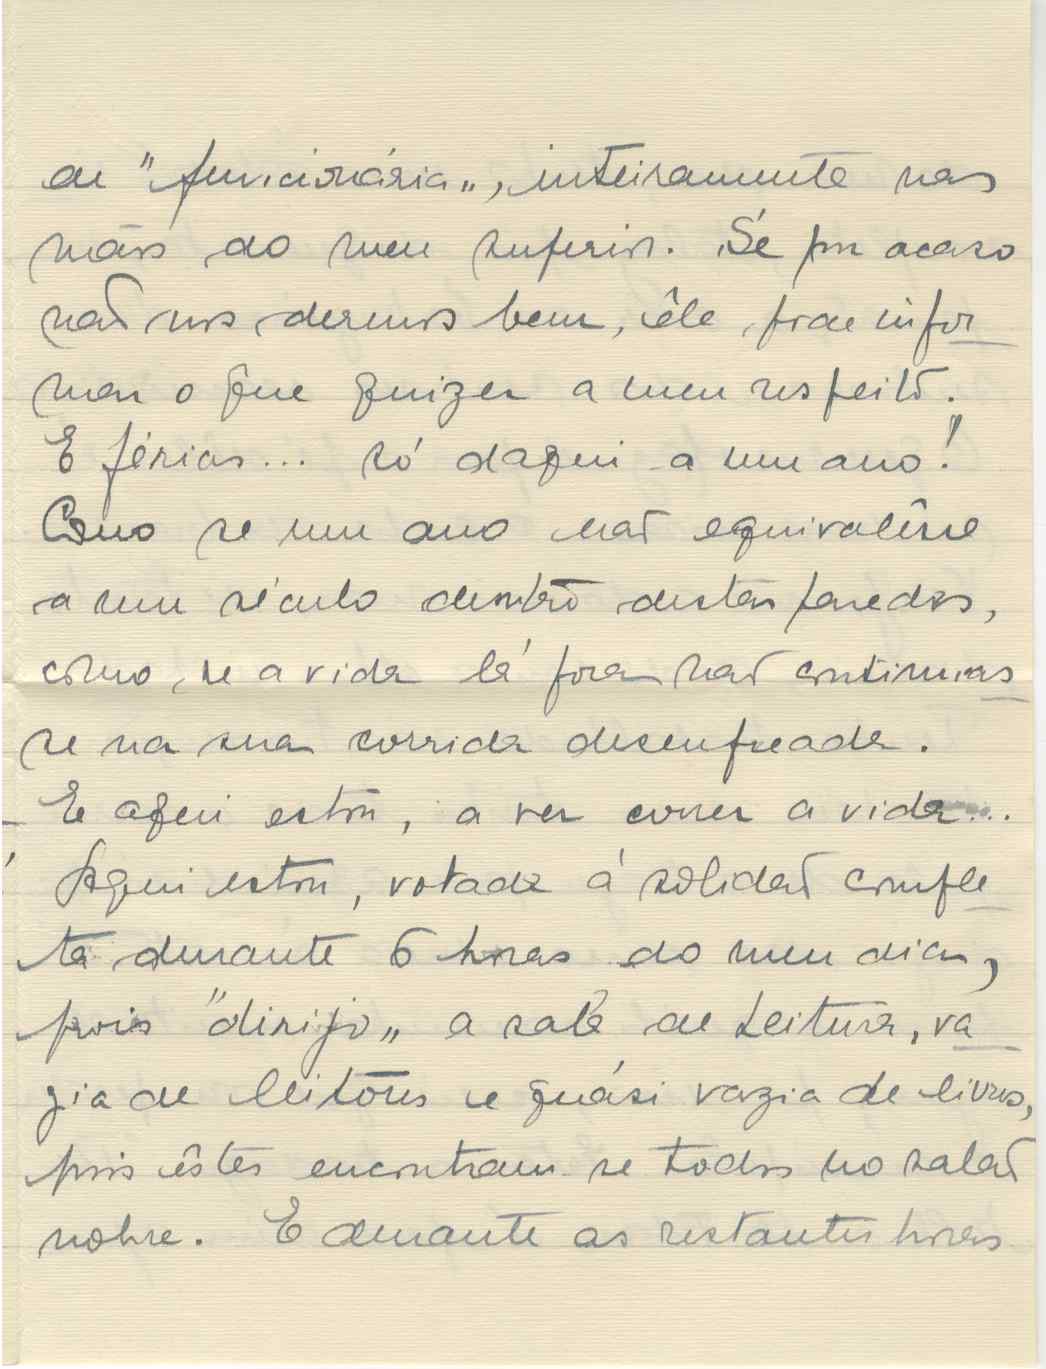 de "funcionária", inteiramente nas
mãos do meu superior. Se por acaso
não nos dermos bem, êle pode infor
mar o que quizer a meu respeito.
E férias... só daqui a um ano!
Como se um ano não equivalêsse
a um século dentro destas paredes,
como se a vida lá fora não continuas
se na sua corrida desenfreada.
E aqui estou, a ver correr a vida...
Aqui estou, votada á solidão comple
ta durante 6 horas do meu dia,
pois "dirijo" a sala de Leitura, va
zia de leitores e quási vazia de livros,
pois êstes encontram se todos no salão
nobre. E durante as restantes horas